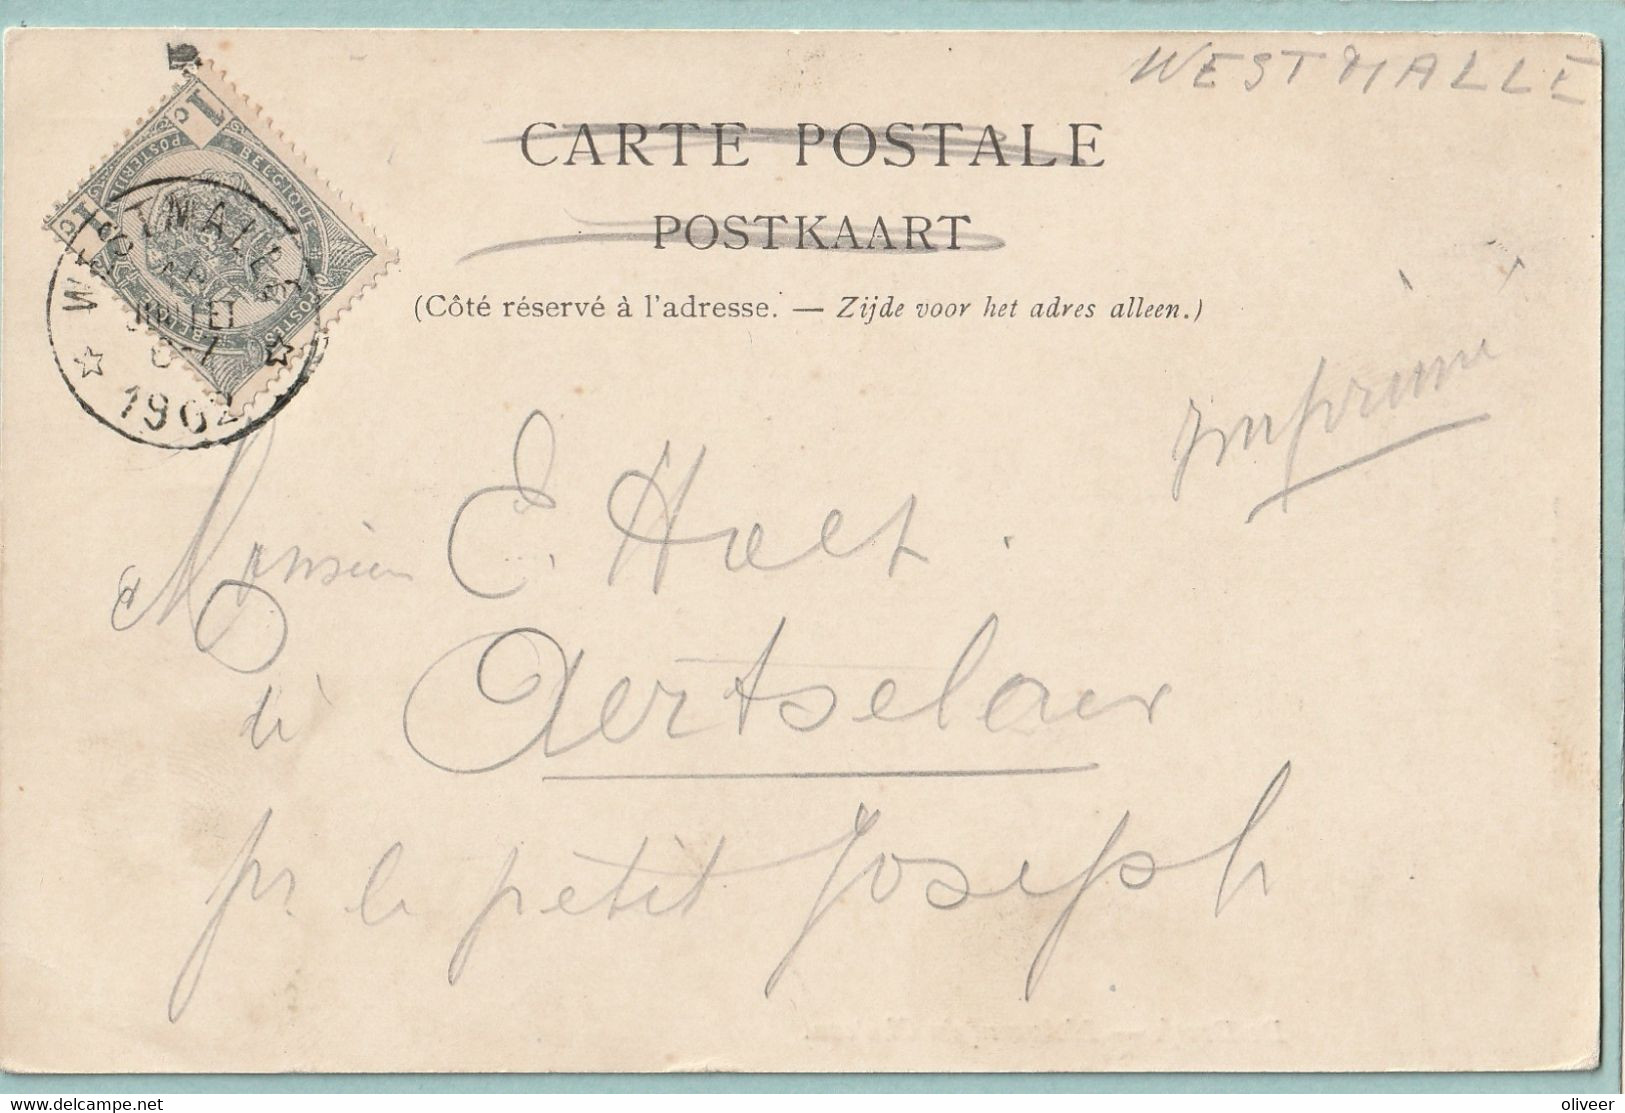 WESTMALLE
CARTE POSTALE
POSTKAART
(Côté réservé à l'adresse. — Zijde voor het adres alleen.)
BELGIQUE
POSTES
WESTMALLE
JUILLET
1902
Imprimé
Monsieur E.
à Aertselaer
pr le petit Joseph
oliveer